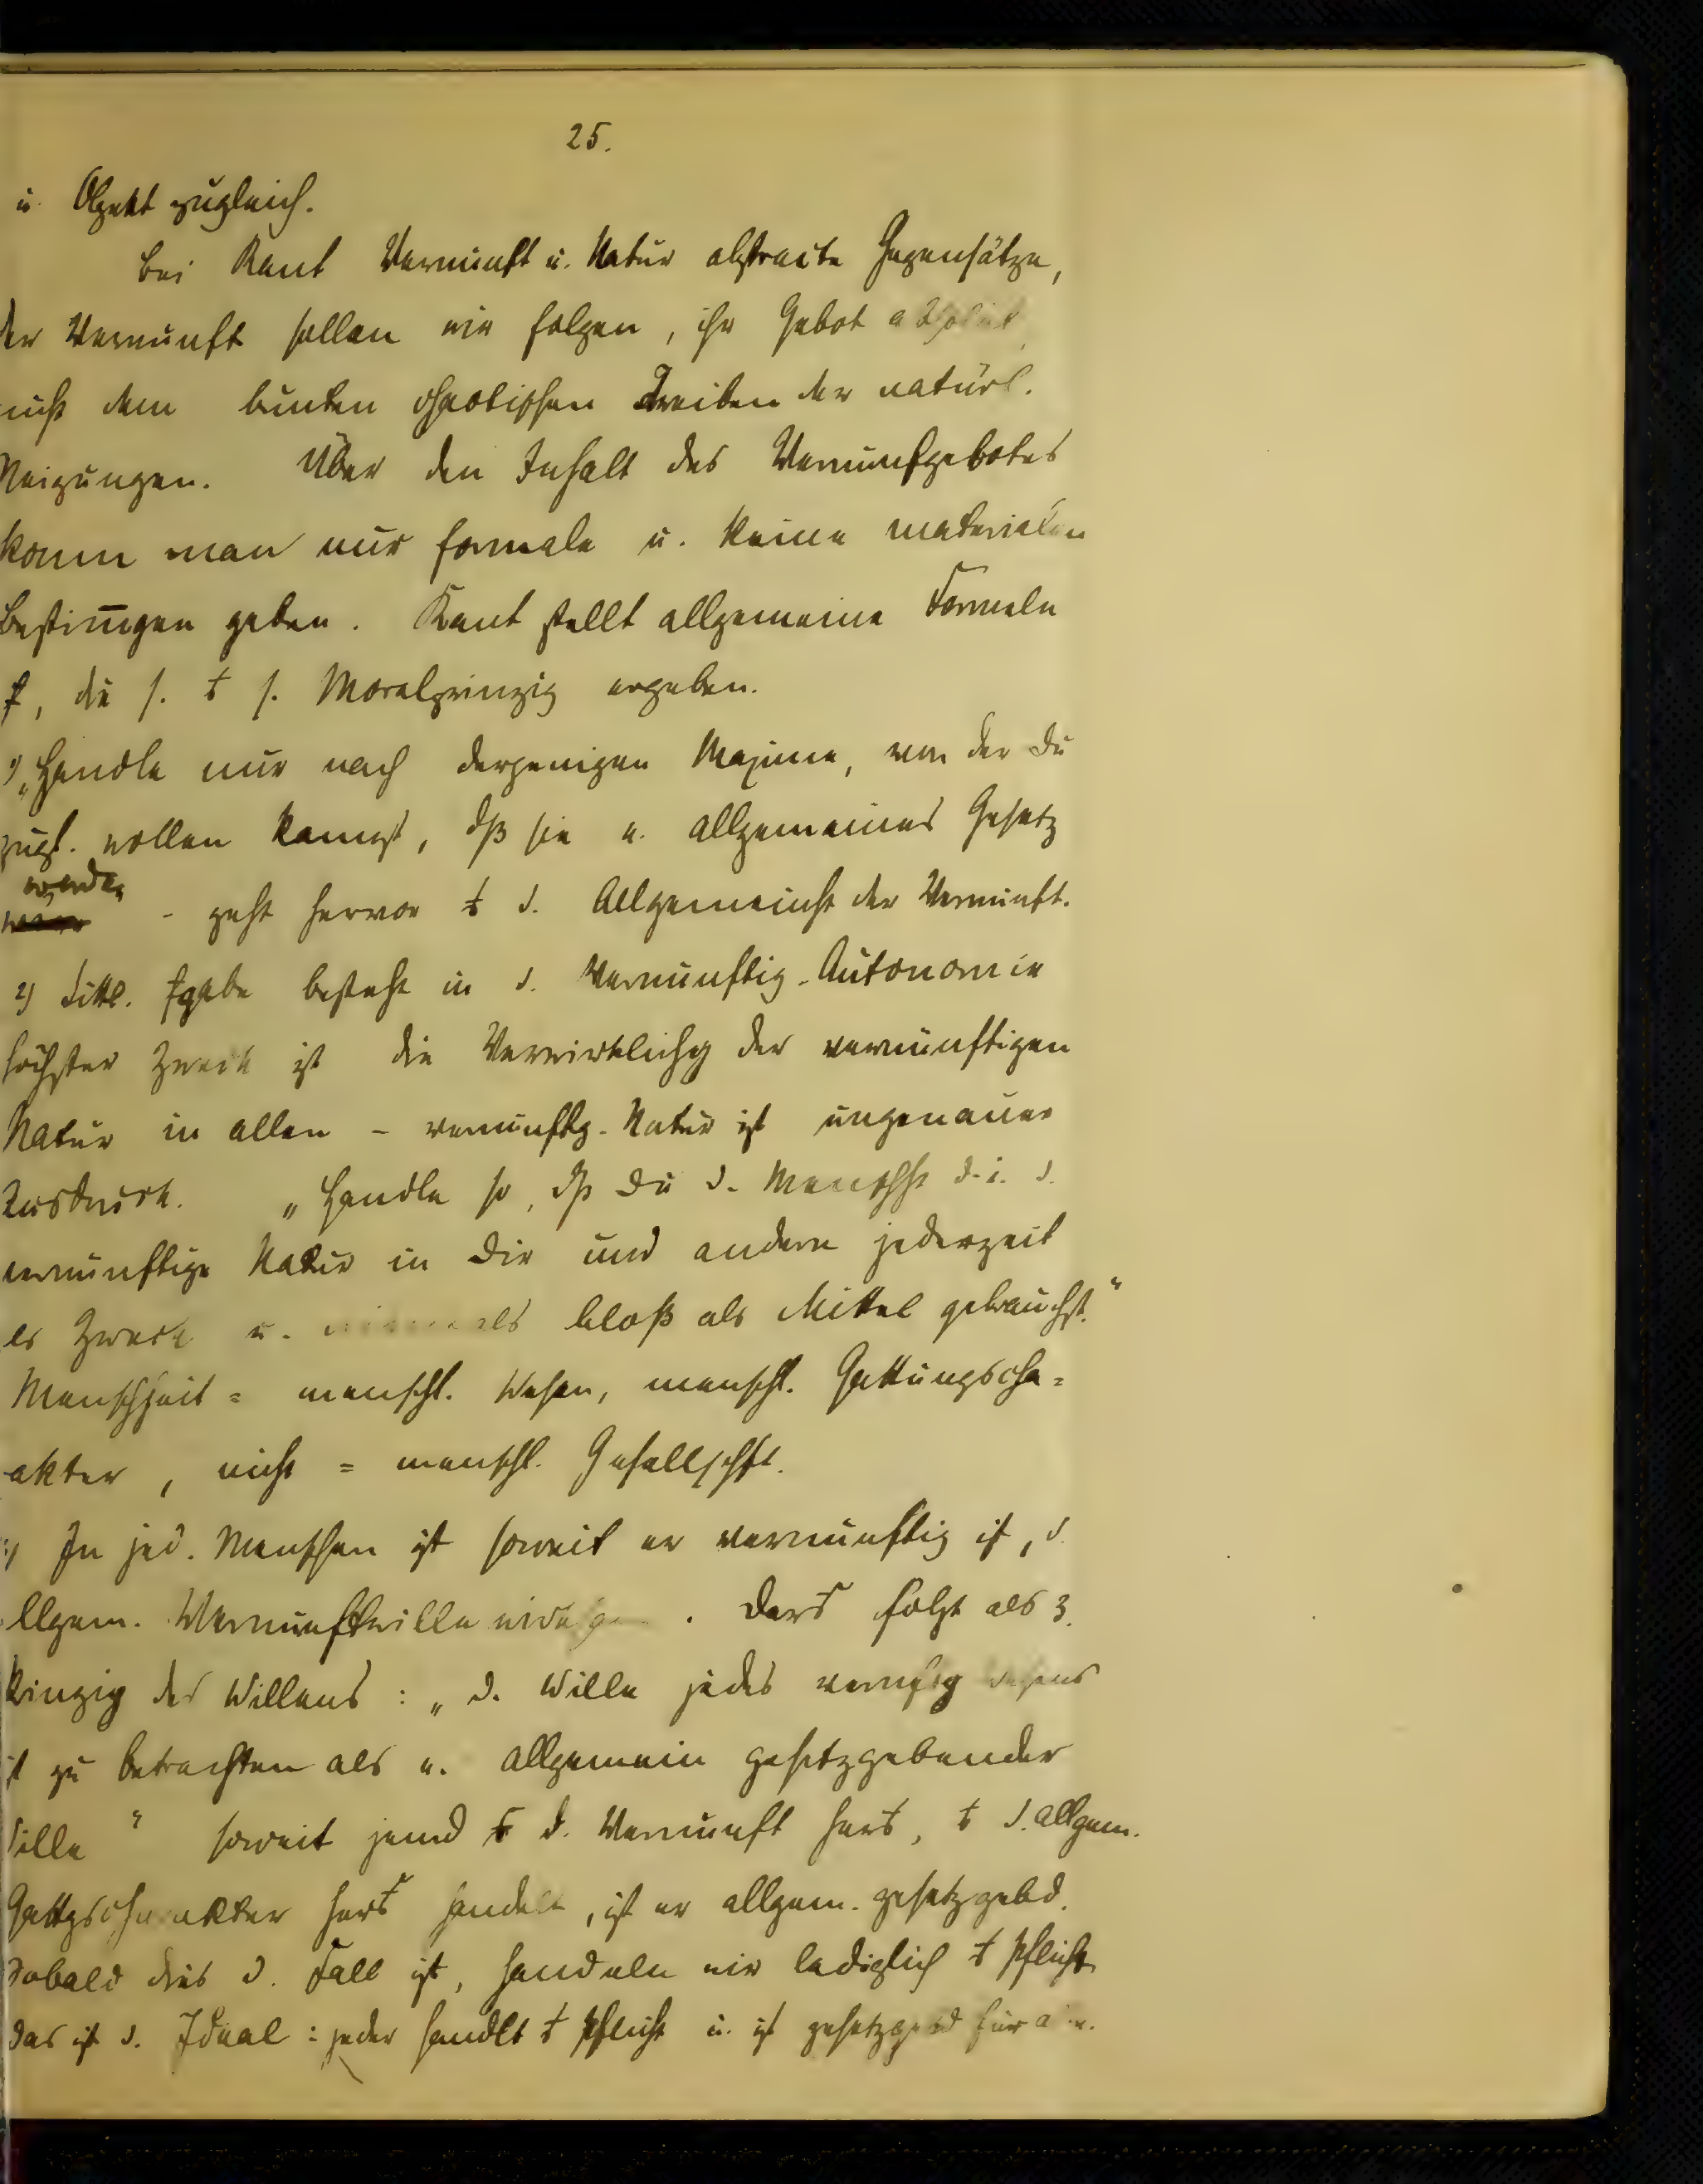 25.
u. Objekt zugleich.
Bei Kant Vernunft u. Natur abstracte Gegensätze,
der Vernunft sollen wir folgen, ihr Gebot absolut
nicht dem bunten chaotischen Treiben der natürl.
Neigungen. Über den Inhalt des Vernunfgebotes
kann man nur formale u. keine materialen
Bestimgen geben. Kant stellt allgemeine Formeln
f, die s. t s. Moralprinzip ergeben.
1) „Handle nur nach derjenigen Maxime, von der Du
zugl. wollen kannst, dß sie e. allgemeines Gesetz
werde
- geht hervor t d. Allgemeinht der Vernunft.
2) Sittl. fgabe besteht in d. Vernünftig. Autonomie
höchster Zweck ist die Verwirklichg der vernünftigen
Natur in allen - vernunftg. Natur ist ungenauer
Ausdruck. „Handle so, dß Du d. Menschht d.i. d.
vernünftige Natur in Dir und andern jederzeit
als Zweck u. niemals bloß als Mittel gebrauchst."
Menschheit = menschl. Wesen, menschl. Gattungscha=
akter, nicht = menschl. Gesellschft.
3) In jed. Menschen ist soweit er vernünftig ist, d.
llgem. Vernunftwille . Dart folgt als 3.
Prinzip des Willens: „d. Wille jedes vernftg Wesens
ist zu betrachten als e. allgemein gesetzgebender
Wille" soweit jemd t d. Vernunft hert, t d. allgem.
Gattgscharakter hert handelt, ist er allgem. gesetzgebd.
Sobald dies d. Fall ist, handeln wir lediglich t Pflicht
Das ist d. Ideal: jeder handlt t Pflicht u. ist gesetzgebd für